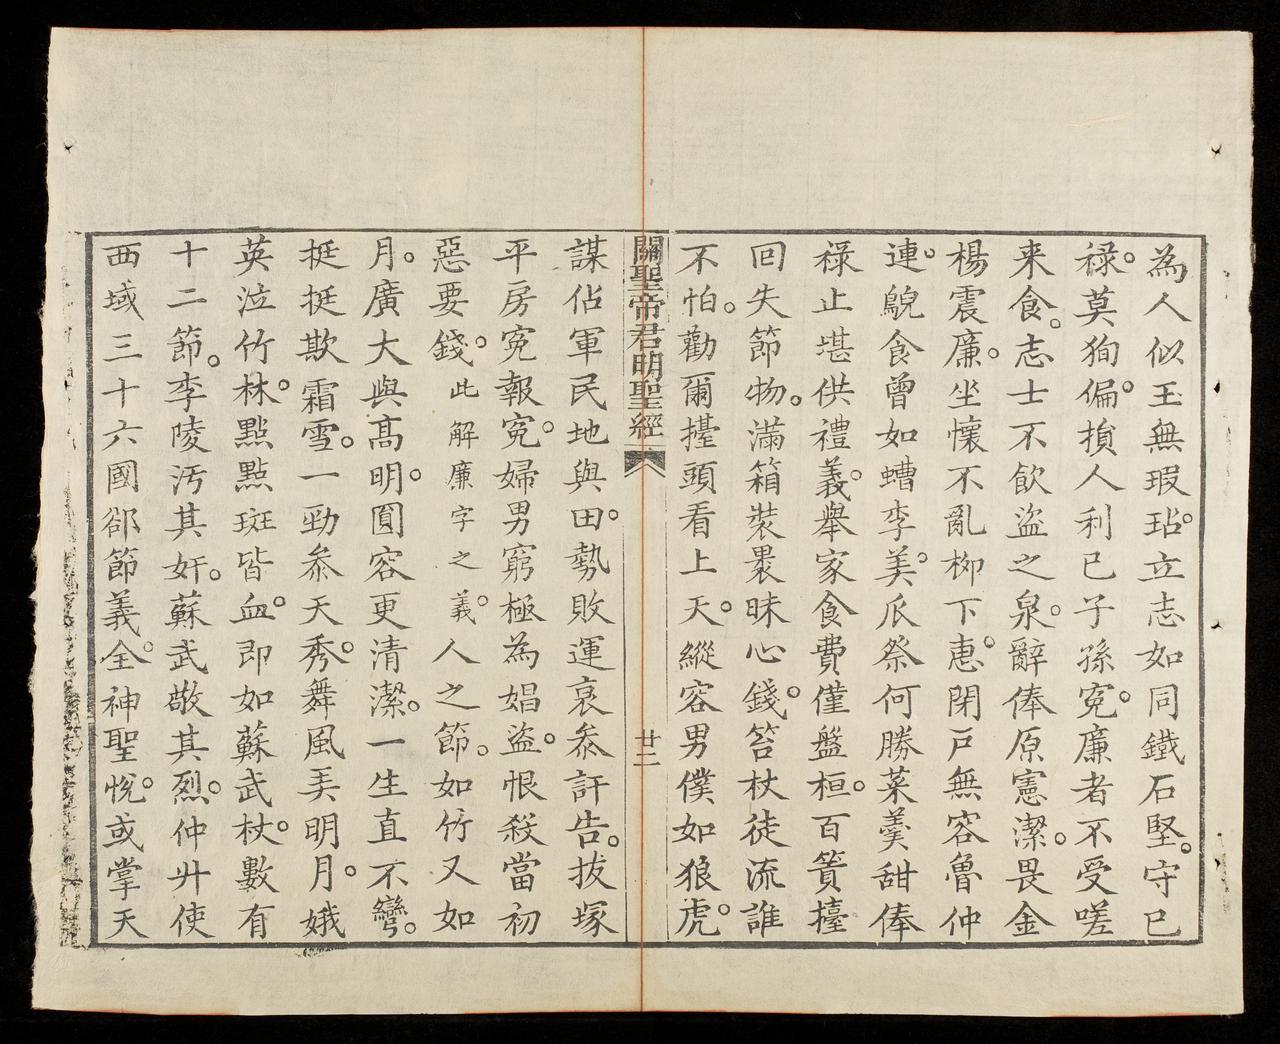 為人似玉無瑕玷。立志如同鐵石堅。守已
禄。莫狥偏。損人利已子孫寃。廉者不受嗟
来食。志士不飲盜之泉。辭俸原憲潔。畏金
楊震廉。坐懷不亂柳下惠。閉戸無容魯仲
連。鶃食曾如螬李美。瓜祭何勝菜羹甜。俸
禄止堪供禮義。舉家食費僅盤桓。百簣擡
回失節物。滿箱裝裹昧心錢。笞杖徒流誰
不怕。勸爾擡頭看上天。縱容男僕如狼虎。
關聖帝君明聖經
廿二
謀佔軍民地與田。勢敗運衰叅訐告。拔塚
平房寃報寃。婦男窮極為娼盜。恨殺當初
惡要錢。此解廉字之義。人之節。如竹又如
月。廣大與髙明。圓容更清潔。一生直不彎。
挺挺欺霜雪。一勁叅天秀。舞風弄明月。娥
英泣竹林。點點斑皆血。即如蘇武杖。數有
十二節。李陵汚其奸。蘇武敬其烈。仲升使
西域三十六國。郤節義全。神聖悅。或掌天